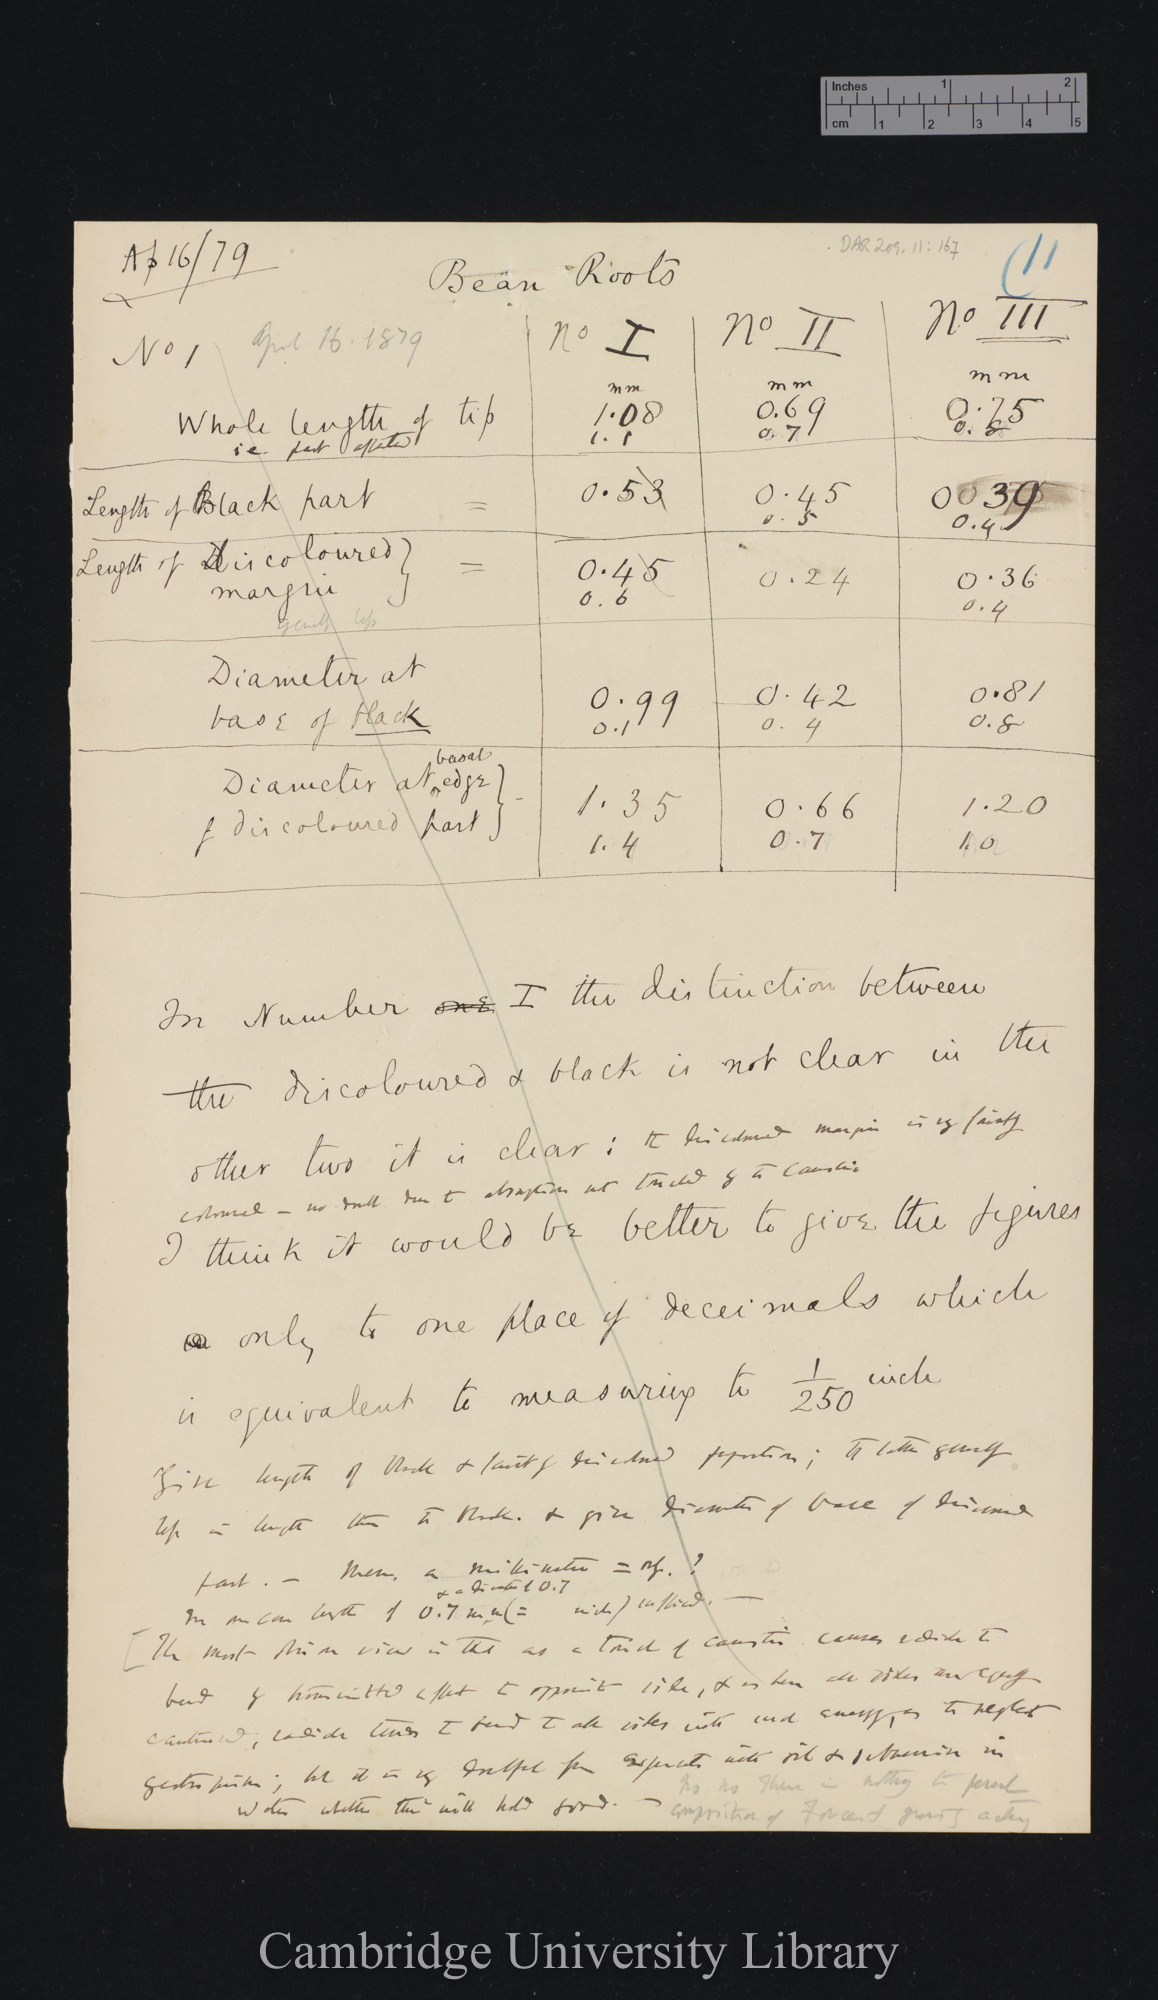 Inches 1 2
cm 1 2 3 4 5
DAR 209.11:167
Ap 16/79
11
Bean Roots
No 1 April 16. 1879
No I No II No III
mm mm mm
Whole length of tip 1.08 0.69 0.75
i.e. part affected 1.1 0.7 0.8
Length of Black part = 0.53 0.45 0.39
0.5 0.4
Length of Discoloured } = 0.45 0.24 0.36
margin 0.6 0.4
Diameter at
base of black 0.99 0.42 0.81
0.1 0.4 0.8
Diameter at basal edge } 1.35 0.66 1.20
of discoloured part 1.4 0.7 1.0
In Number one I the distinction between
the discoloured & black is not clear in the
other two it is clear: the discoloured margin is vy faintly
coloured — no doubt due to absorption not touched by the Caustic
I think it would be better to give the figures
only to one place of deceimals which
is equivalent to measuring to 1/250 inch
Give length of black & faintly discoloured ; the latter generally
less in length than the black. & give diameter of base of discoloured
part. — mem. a millimetre = of.?
& a diameter of 0.7
In one case length of 0.7 mm (= inch) sufficed. —
[The most obvious view is that as a touch of caustic causes radicle to
bend by transmitted effect to opposite side, & as here all sides are equally
cauterised, radicle tends to bend to all sides with such energy, as to neglect
geotropism; but it is vy doubtful from experiments with oil & submersion in
Water whether this will hold good. —
No no there is nothing to prevent
composition of Forces & gravity acting
Cambridge University Library